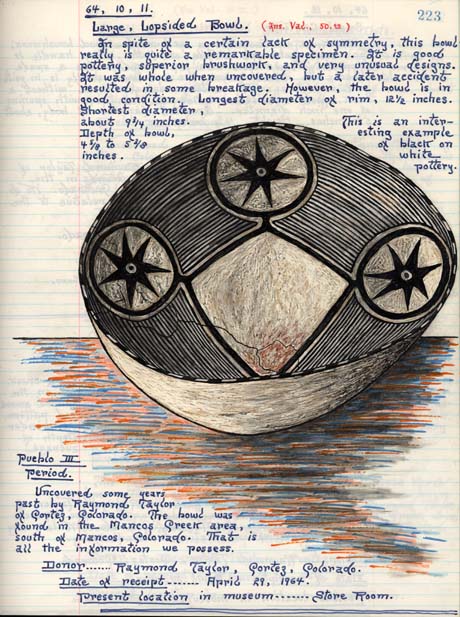 223
64, 10, 11.
Large, Lopsided Bowl. (Ins. Val., 50.00)
In spite of a certain lack of symmetry, this bowl
really is quite a remarkable specimen. It is good
pottery, superior brushwork, and very unusual designs.
It was whole when uncovered, but a later accident
resulted in some breakage. However, the bowl is in
good condition. Longest diameter of rim, 12 1/2 inches.
Shortest diameter,
about 9 1/4 inches.
Depth of bowl,
4 1/8 to 5 5/8
inches.
This is an inter-
esting example
of black on
white
pottery.
Pueblo III
Period.
Uncovered some years
past by Raymond Taylor
of Cortez, Colorado. The bowl was
found in the Mancos Creek area,
south of Mancos, Colorado. That is
all the information we possess.
Donor...... Raymond Taylor, Cortez, Colorado.
Date of receipt....... April 29, 1964.
Present location in museum....... Store Room.